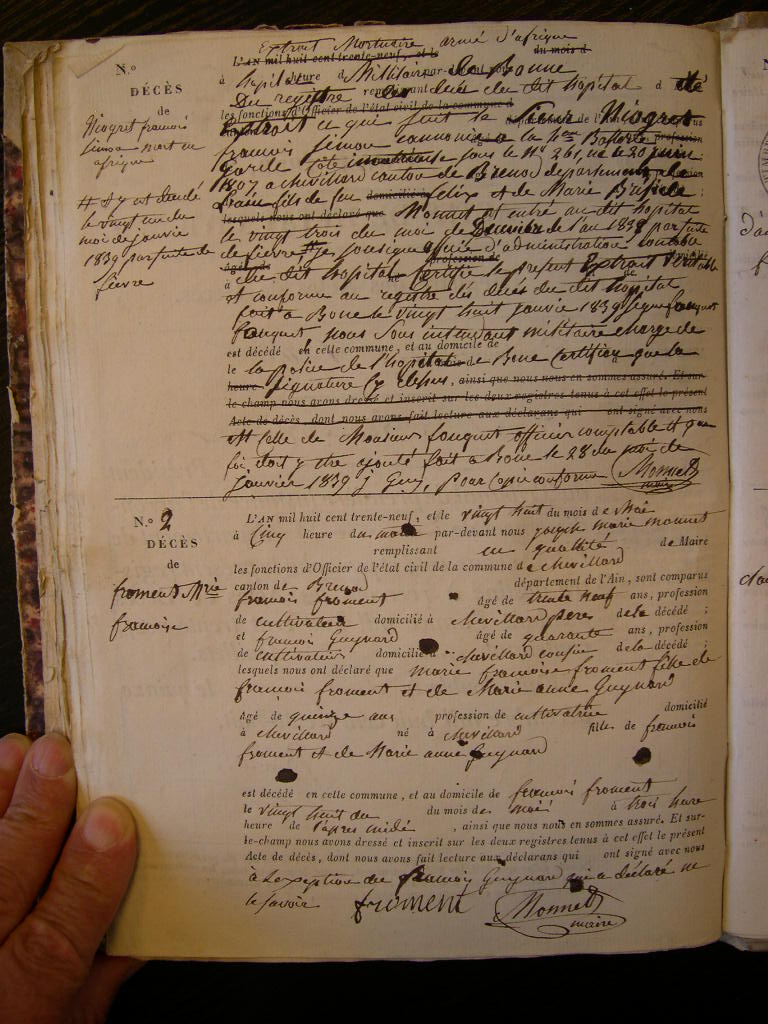 Extrait Mortuaire armé d'afrique
N.º
L'AN mil huit cent trente-neuf, et le du mois d
DÉCÈS
à hopital heure d Militaire par-devant nous de Bonne
de
Du registre remplissant des deces du dit hopital d été
les fonctions d'Officier de l'état civil de la commune d
Niogret francois
simon mort en
afrique
Extroit ce qui suit le sieur Niogret
francois simon cannonier a la Batterie profession
garde Côte sous le Nº 261, né le 20 juin
1807 a chevillard canton de Brenod departement de
# Il y est decedé
le vingt
moi de janvie
1839 par suite de
fievre
l'ain fils de feu domicilié à felix et de Marie ;
lesquels nous ont déclaré que Monnet est entré au dit hopital
le vingt trois du moi de de l'an 1838 par suite
de fievre # je soussigné officie d'administration comtable
du dit hopital Certifie le present Extrait veritable
et conforme au registre des deces du dit hopital
fait a Bone le vingt huit janvie 1839 signé fouquet
fouquet nous sous intendant militaire chargé de
est décédé en celle commune, et au domicile de
le la police de l'hopital de Bone Certifion que la
heure signature ci dessus , ainsi que nous nous en sommes assuré. Et sur-
le-champ nous avons dressé et inscrit sur les deux registres tenus à cet effet le présent
Acte de décès, dont nous avons fait lecture aux déclarans qui ont signé avec nous
est celle de Monsieur fouquet officier comptable et que
foi doit y etre ajouté fait a Bone le 28 du moi de
janvier 1839 J Guy, pour Copie conforme Monnet
maire
N.º 2
L'AN mil huit cent trente-neuf, et le vingt huit du mois de Mai
DÉCÈS
à Cinq heure du matin par-devant nous joseph marie monnet
de
remplissant en quallité de Maire
les fonctions d'Officier de l'état civil de la commune de chevillard
froment Mrie
francoise
canton de Brenod département de l'Ain, sont comparus
francois froment âgé de trente neuf ans, profession
de cultivateur domicilié à chevillard pere de la décédé ;
et francois Guynard âgé de quarante ans, profession
de cultivateur domicilié à chevillard cousin de la décédé ;
lesquels nous ont déclaré que marie francoise froment fille de
francois froment et de Marie anne Guynard
âgé de quinze ans profession de cultivatrice domicilié
à chevillard né à chevillard fille de francois
froment et de Marie anne Guynard
est décédé en celle commune, et au domicile de francois froment
le vingt huit du du mois de moi à trois heure
heure de l'apres midé , ainsi que nous nous en sommes assuré. Et sur-
le-champ nous avons dressé et inscrit sur les deux registres tenus à cet effet le présent
Acte de décès, dont nous avons fait lecture aux déclarans qui ont signé avec nous
à l'exception de francois Guynard qui a déclaré ne
le savoir froment Monnet
maire